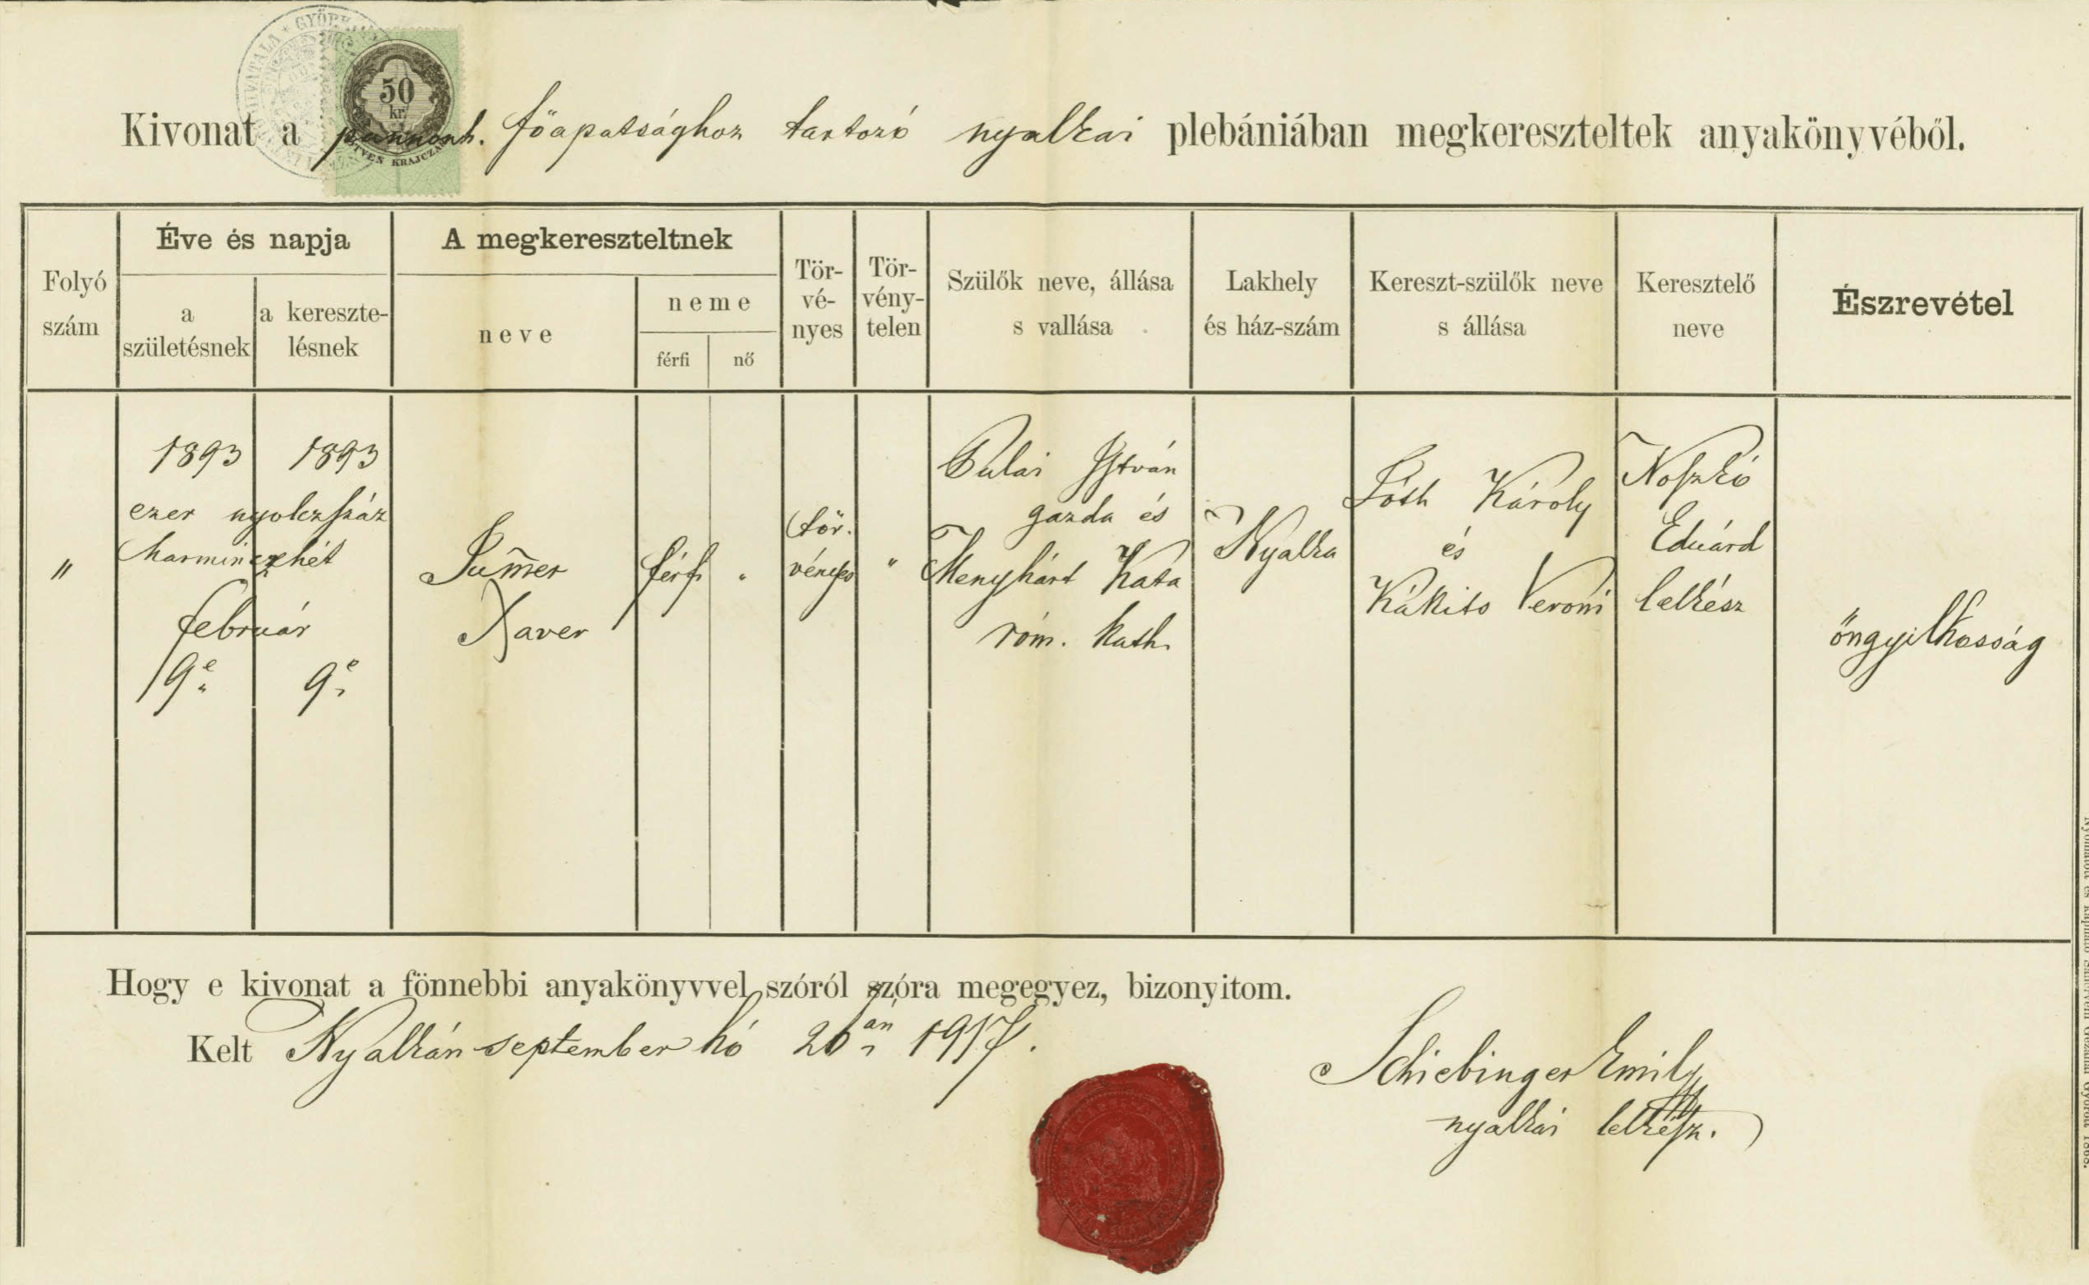 GYŐR
50
kr.
ÖTVEN KRAJCZÁR
Kivonat a pannonh. főapatsághoz tartozó nyalkai plebániában megkereszteltek anyakönyvéből.
Folyó szám
Éve és napja
a születésnek
a keresztelésnek
A megkereszteltnek
neve
neme
férfi
nő
Törvényes
Törvénytelen
Szülők neve, állása s vallása
Lakhely és ház-szám
Kereszt-szülők neve s állása
Keresztelő neve
Észrevétel
"
1893 1893
ezer nyolczszáz
harminczhét
február
19e 9e
Sum̃er
Xaver
férfi
"
tör.
vényes
"
Pulai István
gazda és
Menyhárt Kata
róm. kath.
Nyalka
Tóth Károly
és
Kákits Veroni
Noszkó
Eduárd
lelkész
öngyilkosság
Hogy e kivonat a fönnebbi anyakönyvvel szóról szóra megegyez, bizonyitom.
Kelt Nyalkán september hó 26án 1917.
Schiebinger Emil
nyalkai lelkész.